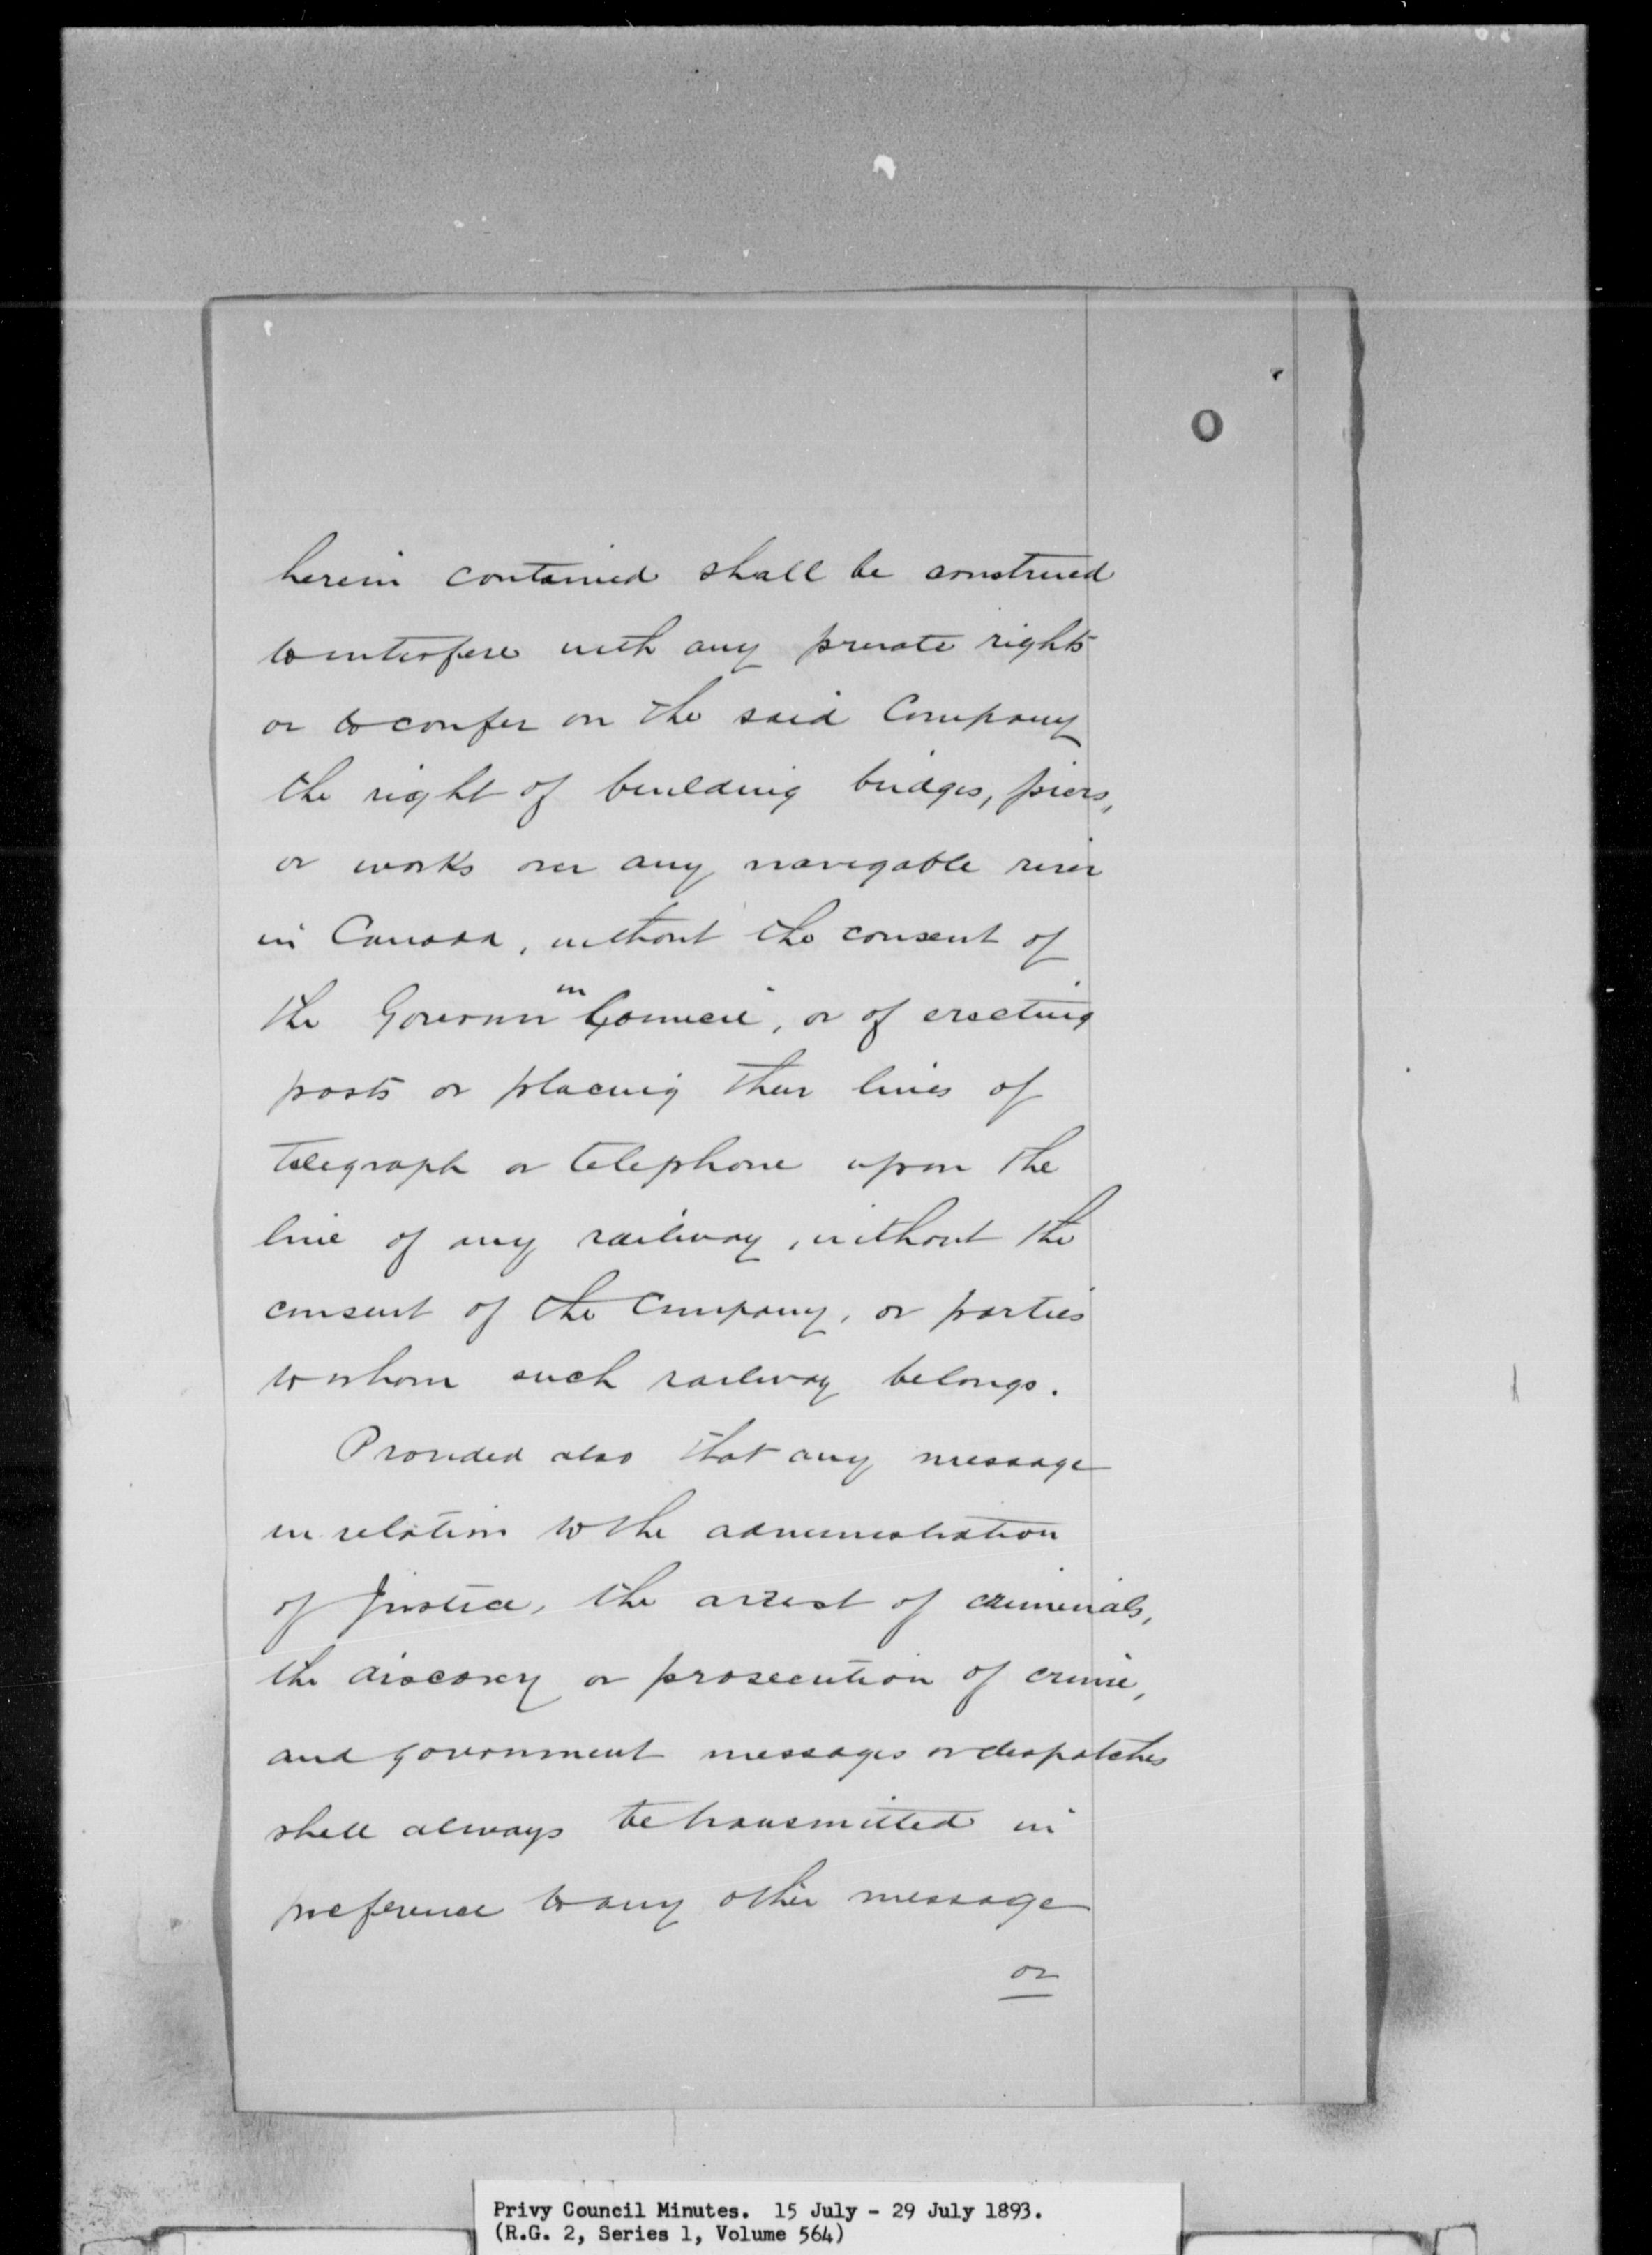 O
herein contained shall be construed
to interfere with any private rights
or to confer on the said Company
the right of building bridges, piers,
or works over any navigable river
in Canada, without the consent of
the Governor in Council, or of erecting
posts or placing their lines of
telegraph or telephone upon the
line of any railway, without the
consent of the Company, or parties
to whom such railway belongs.
Provided also that any message
in relation to the administration
of Justice, the arrest of criminals,
the discovery or prosecution of crime,
and government messages or despatches
shall always be transmitted in
preference to any other message
or
Privy Council Minutes. 15 July - 29 July 1893.
(R.G. 2, Series 1, Volume 564)